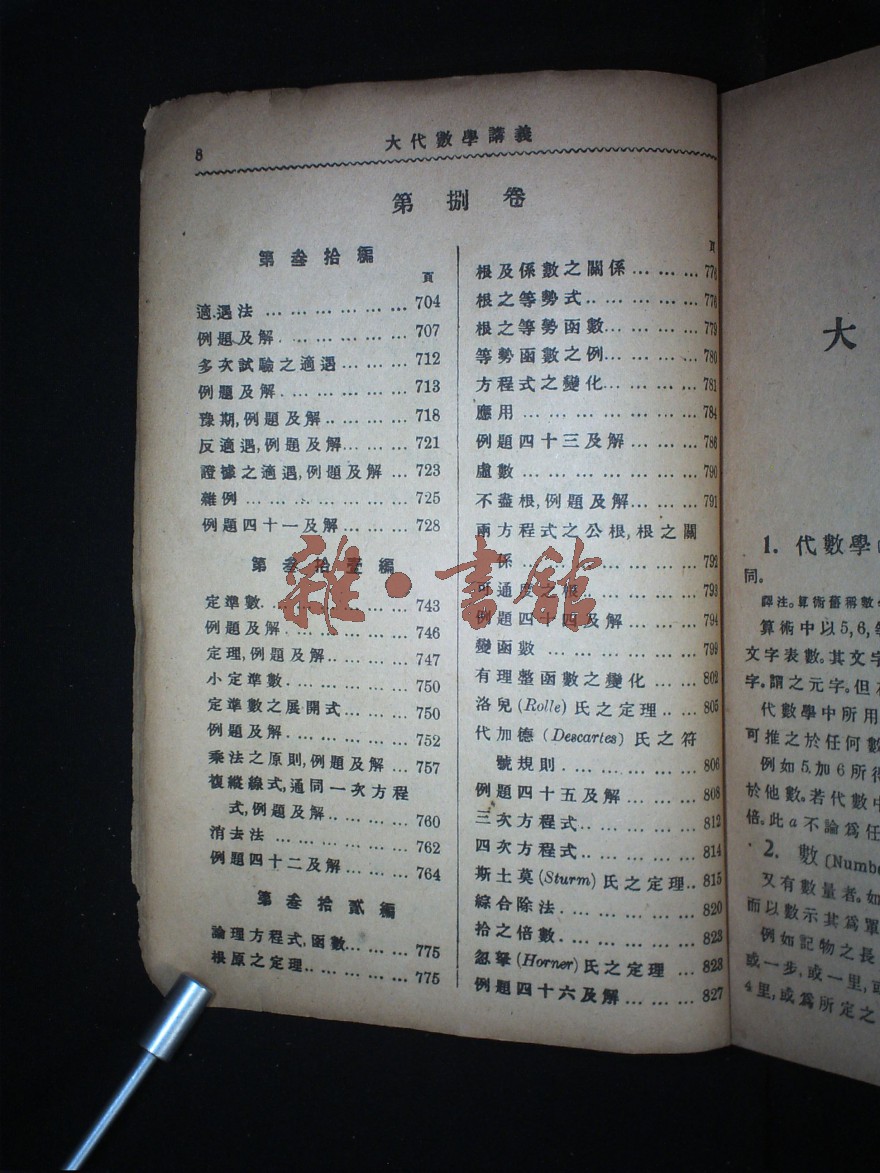 8
大代數學講義
第捌卷
第叁拾編
頁
適遇法 ... ... ... ... ... ... 704
例題及解. ... ... ... ... ... 707
多次試驗之適遇... ... ... 712
例題及解. ... ... ... ... ... 713
豫期,例題及解.. ... ... ... 718
反適遇,例題及解... ... ... 721
證據之適遇,例題及解 ... 723
雜例 ... ... ... ... ... ... ... 725
例題四十一及解 ... ... ... 728
第叁拾壹編
定準數... ... ... ... ... ... ... 743
例題及解. ... ... ... ... ... 746
定理,例題及解.. ... ... ... 747
小定準數... ... ... ... ... ... 750
定準數之展開式... ... ... 750
例題及解. ... ... ... ... ... 752
乘法之原則,例題及解 ... 757
複縱線式,通同一次方程
式,例題及解.. ... ... ... 760
消去法 ... ... ... ... ... ... 762
例題四十二及解... ... ... 764
第叁拾貳編
論理方程式,函數... ... ... 775
根原之定理.. ... ... ... ... 775
頁
根及係數之關係 ... ... ... 77
根之等勢式.. ... ... ... ... 776
根之等勢函數... ... ... ... 779
等勢函數之例... ... ... ... 780
方程式之變化... ... ... ... 781
應用 ... ... ... ... ... ... ... 784
例題四十三及解 ... ... ... 786
虛數 ... ... ... ... ... ... ... 790
不盡根,例題及解... ... ... 791
兩方程式之公根,根之關
係 ... ... ... ... ... ... ... 792
可通度之根.. ... ... ... ... 793
例題四十四及解 ... ... ... 794
變函數 ... ... ... ... ... ... 799
有理整函數之變化 ... ... 802
洛兒 (Rolle) 氏之定理 .. ... 805
代加德 (Descartes) 氏之符
號規則 . ... ... ... ... ... 806
例題四十五及解 ... ... ... 808
三次方程式.. ... ... ... ... 812
四次方程式.. ... ... ... ... 814
斯土莫 (Sturm) 氏之定理.. 815
綜合除法 . ... ... ... ... ... 820
拾之倍數. ... ... ... ... ... 823
忽拏 (Horner) 氏之定理 ... 823
例題四十六及解 ... ... ... 827
雜·書館
大
1. 代數學
同。
譯注。算術舊稱數
算術中以5,6,
文字表數。其文字
字,謂之元字。但
代數學中所用
可推之於任何數
例如5,加6所得
於他數。若代數中
倍。此a不論爲任
2. 數 (Numbe
又有數量者。如
而以數示其爲單
例如記物之長
或一步,或一里,或
4里,或爲所定之